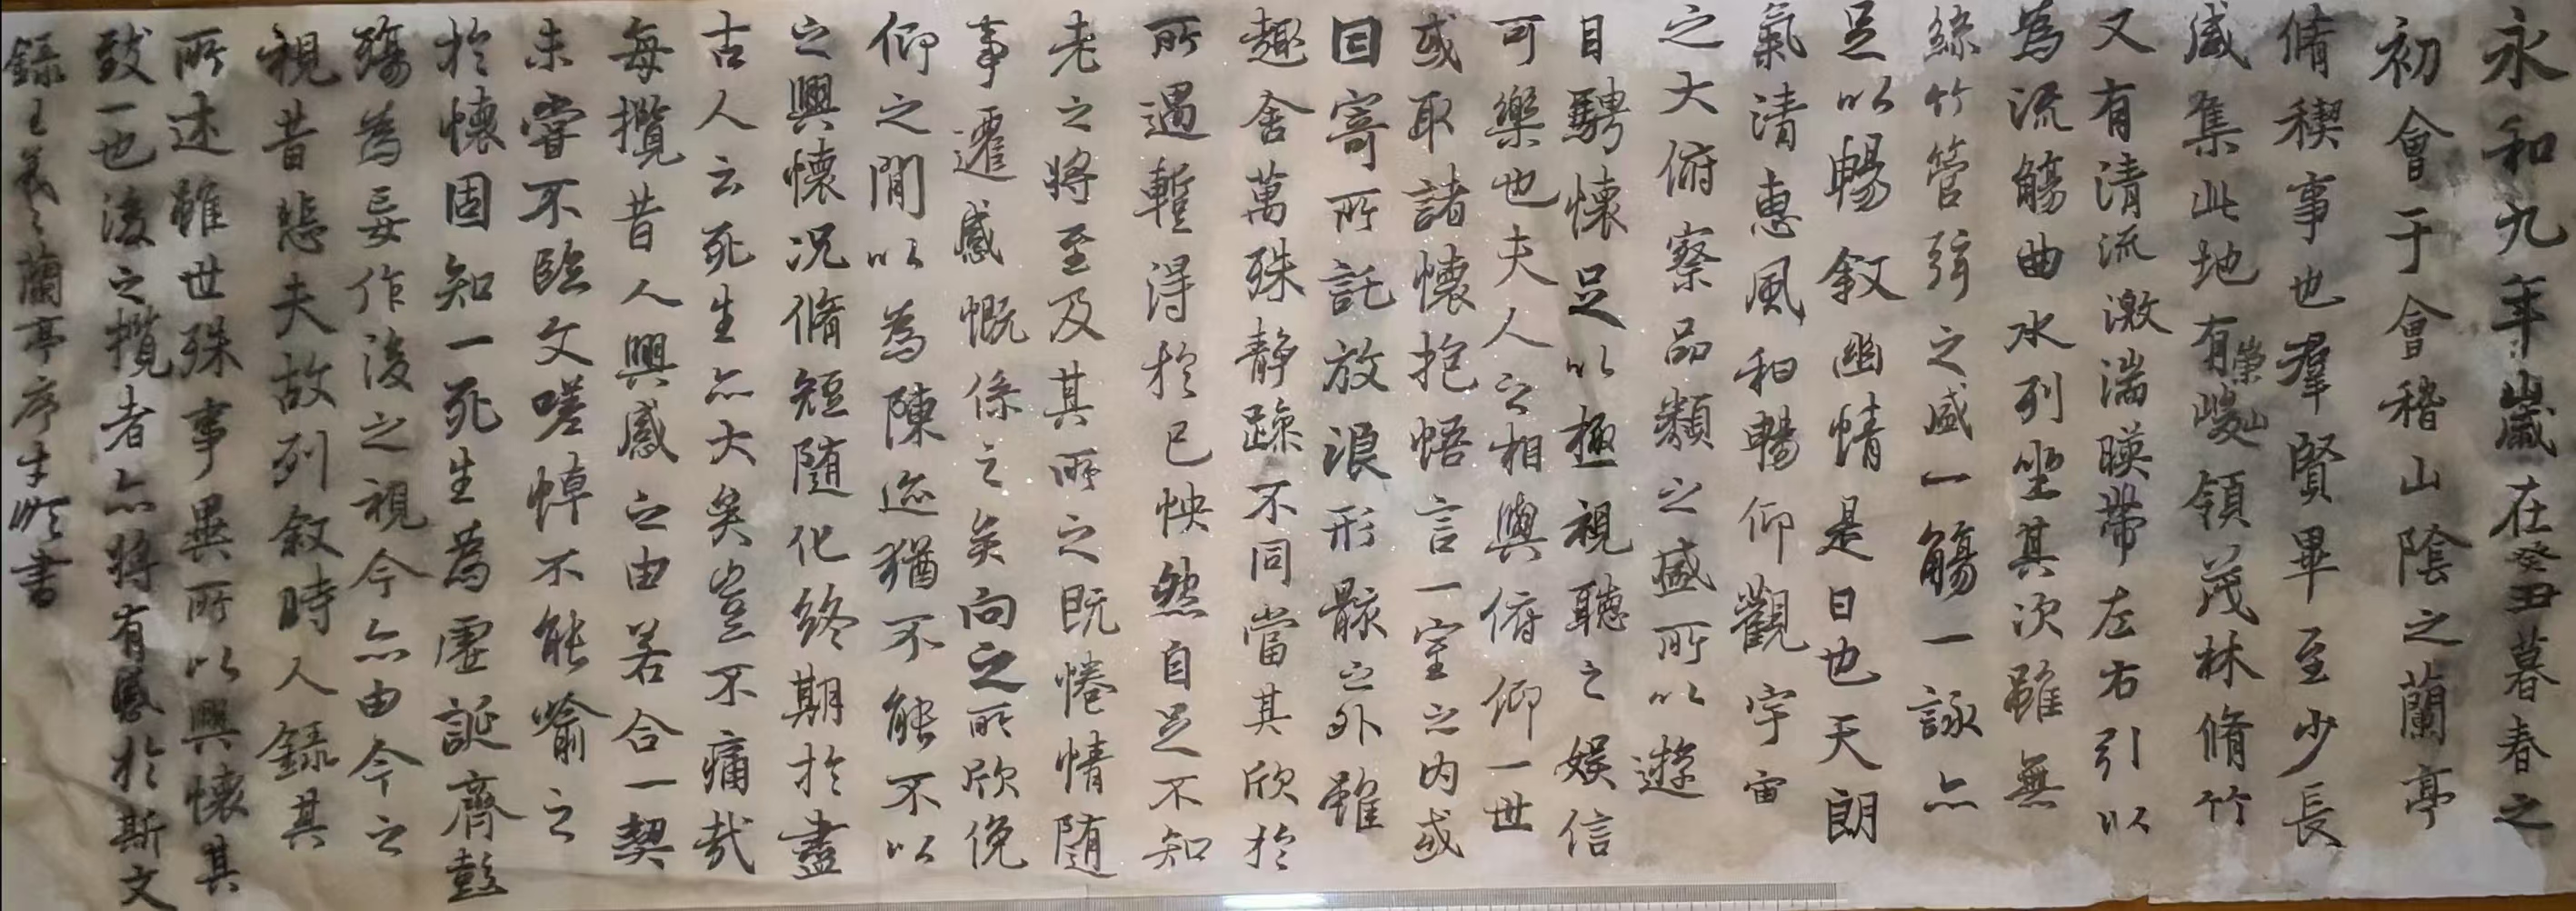 永和九年歲在癸丑暮春之
初會于會稽山陰之蘭亭
脩稧事也羣賢畢至少長
咸集此地有崇山峻領茂林脩竹
又有清流激湍暎帶左右引以
為流觴曲水列坐其次雖無
絲竹管弦之盛一觴一詠亦
足以暢敘幽情是日也天朗
氣清惠風和暢仰觀宇宙
之大俯察品類之盛所以遊
目騁懷足以極視聽之娛信
可樂也夫人之相與俯仰一世
或取諸懷抱悟言一室之內或
因寄所託放浪形骸之外雖
趣舍萬殊静躁不同當其欣於
所遇蹔得於己怏然自足不知
老之將至及其所之既惓情随
事遷感慨係之矣向之所欣俛
仰之閒以為陳迹猶不能不以
之興懷況脩短随化終期於盡
古人云死生亦大矣豈不痛哉
每攬昔人興感之由若合一契
未嘗不臨文嗟悼不能喻之
於懷固知一死生為虛誕齊彭
殤為妄作後之視今亦由今之
視昔悲夫故列敘時人錄其
所述雖世殊事異所以興懷其
致一也後之攬者亦將有感於斯文
錄王羲之蘭亭序 書